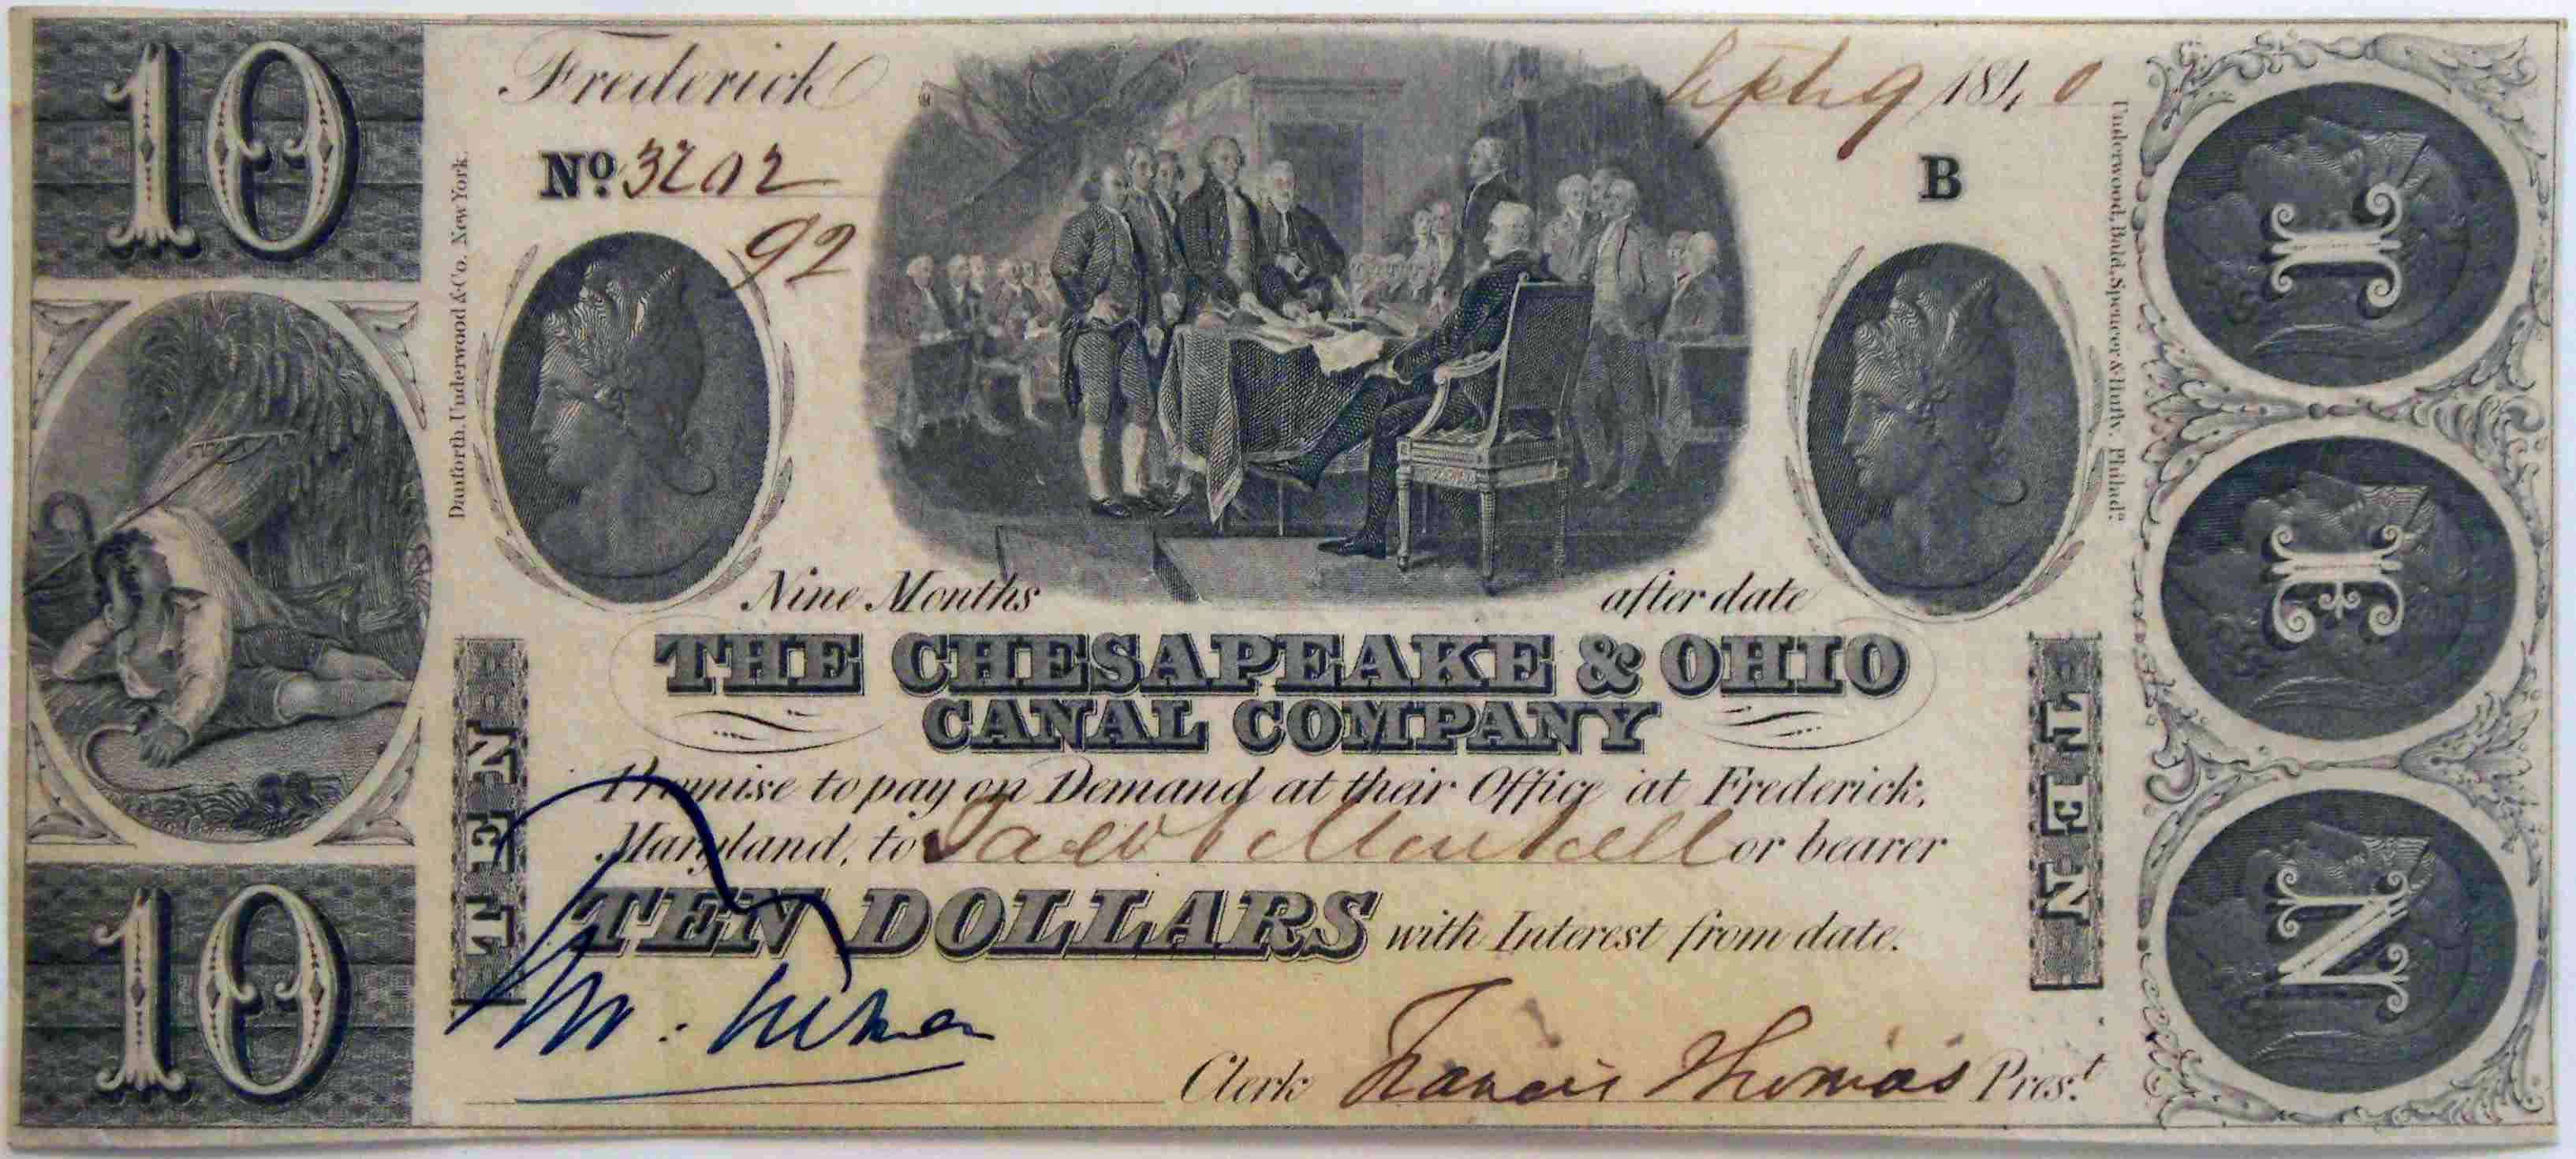 10
Frederick Sept. 9 1840
No. 3202
92
B
Danforth, Underwood & Co. New York.
Underwood, Bald, Spencer & Hufty, Philada.
Nine Months after date
THE CHESAPEAKE & OHIO
CANAL COMPANY
Promise to pay on Demand at their Office at Frederick,
Maryland, to or bearer
TEN DOLLARS with Interest from date.
Clerk Francis Thomas Prest.
TEN
TEN
10
T
E
N